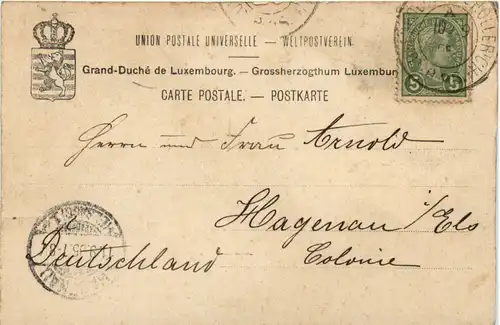 UNION POSTALE UNIVERSELLE — WELTPOSTVEREIN.
Grand-Duché de Luxembourg. — Grossherzogthum Luxemburg
CARTE POSTALE. — POSTKARTE
5 5
Herrn und Frau Arnold
Hagenau i/Els
Deutschland Colonie